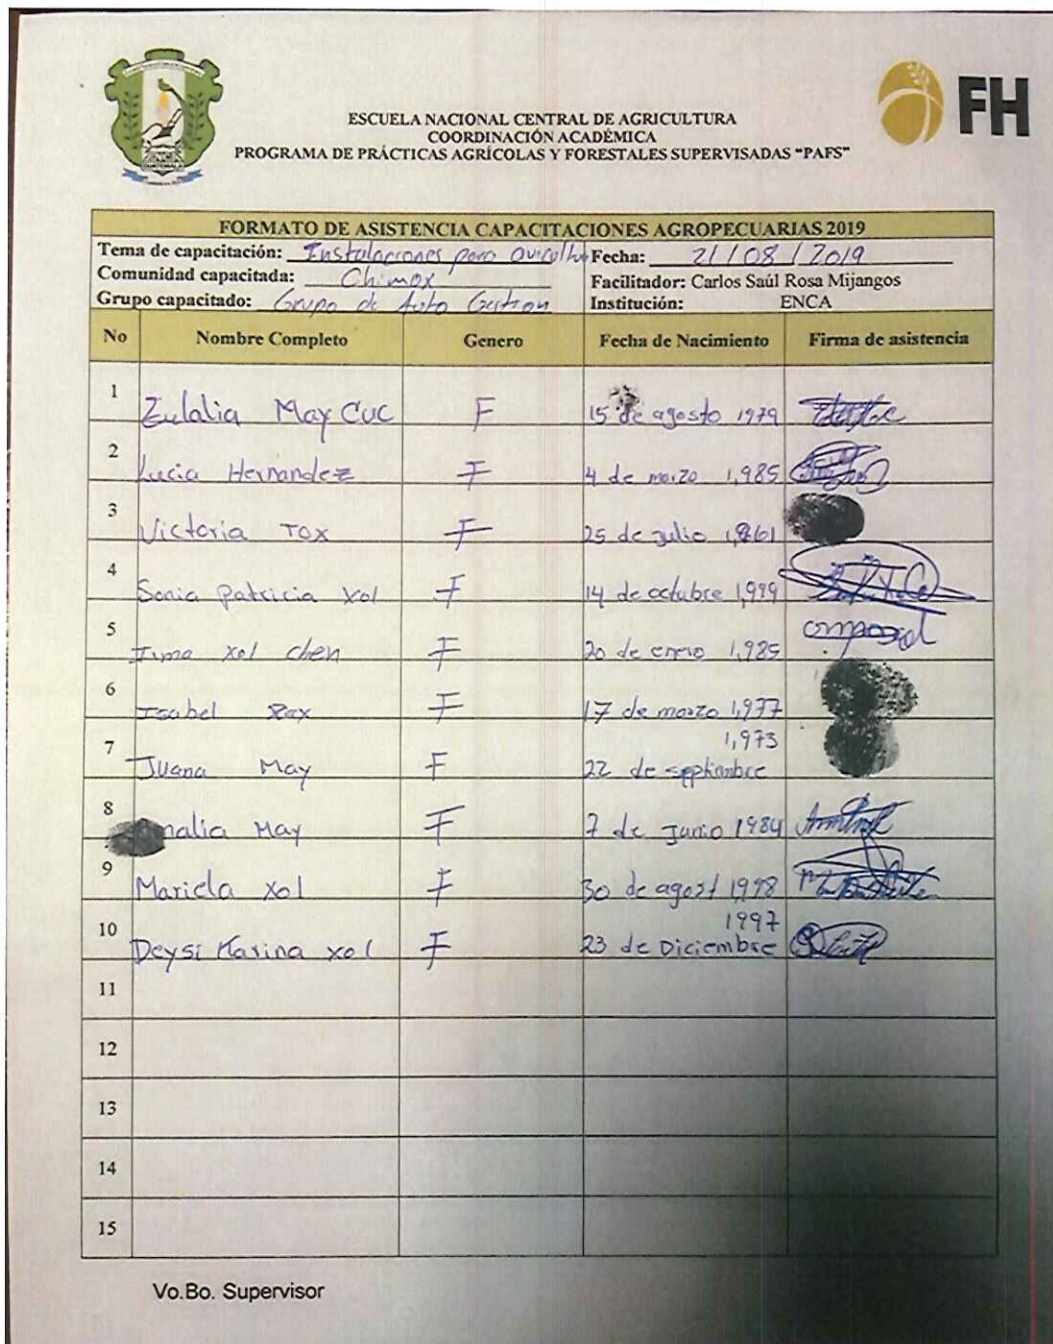 FH
ESCUELA NACIONAL CENTRAL DE AGRICULTURA
COORDINACIÓN ACADÉMICA
PROGRAMA DE PRÁCTICAS AGRÍCOLAS Y FORESTALES SUPERVISADAS "PAFS"
FORMATO DE ASISTENCIA CAPACITACIONES AGROPECUARIAS 2019
Tema de capacitación: Instalaciones para Fecha: 21/08/2019
Comunidad capacitada: Chimox Facilitador: Carlos Saúl Rosa Mijangos
Grupo capacitado: Grupo de Auto Gestion Institución: ENCA
No Nombre Completo Genero Fecha de Nacimiento Firma de asistencia
1 Eulalia May Cuc F 15 de agosto 1979
2 Lucia Hernandez F 4 de marzo 1,985
3 Victoria Tox F 25 de julio
4 Sonia Patricia Xol F 14 de octubre 1,999
5 Irma Xol Chen F 20 de enero 1,985
6 Isabel F 17 de marzo 1,977
1,973
7 Juana May F 22 de septiembre
8 May F 7 de Junio 1984
9 Mariela Xol F 30 de agost 1998
1997
10 Deysi Karina Xol F 23 de Diciembre
11
12
13
14
15
Vo.Bo. Supervisor